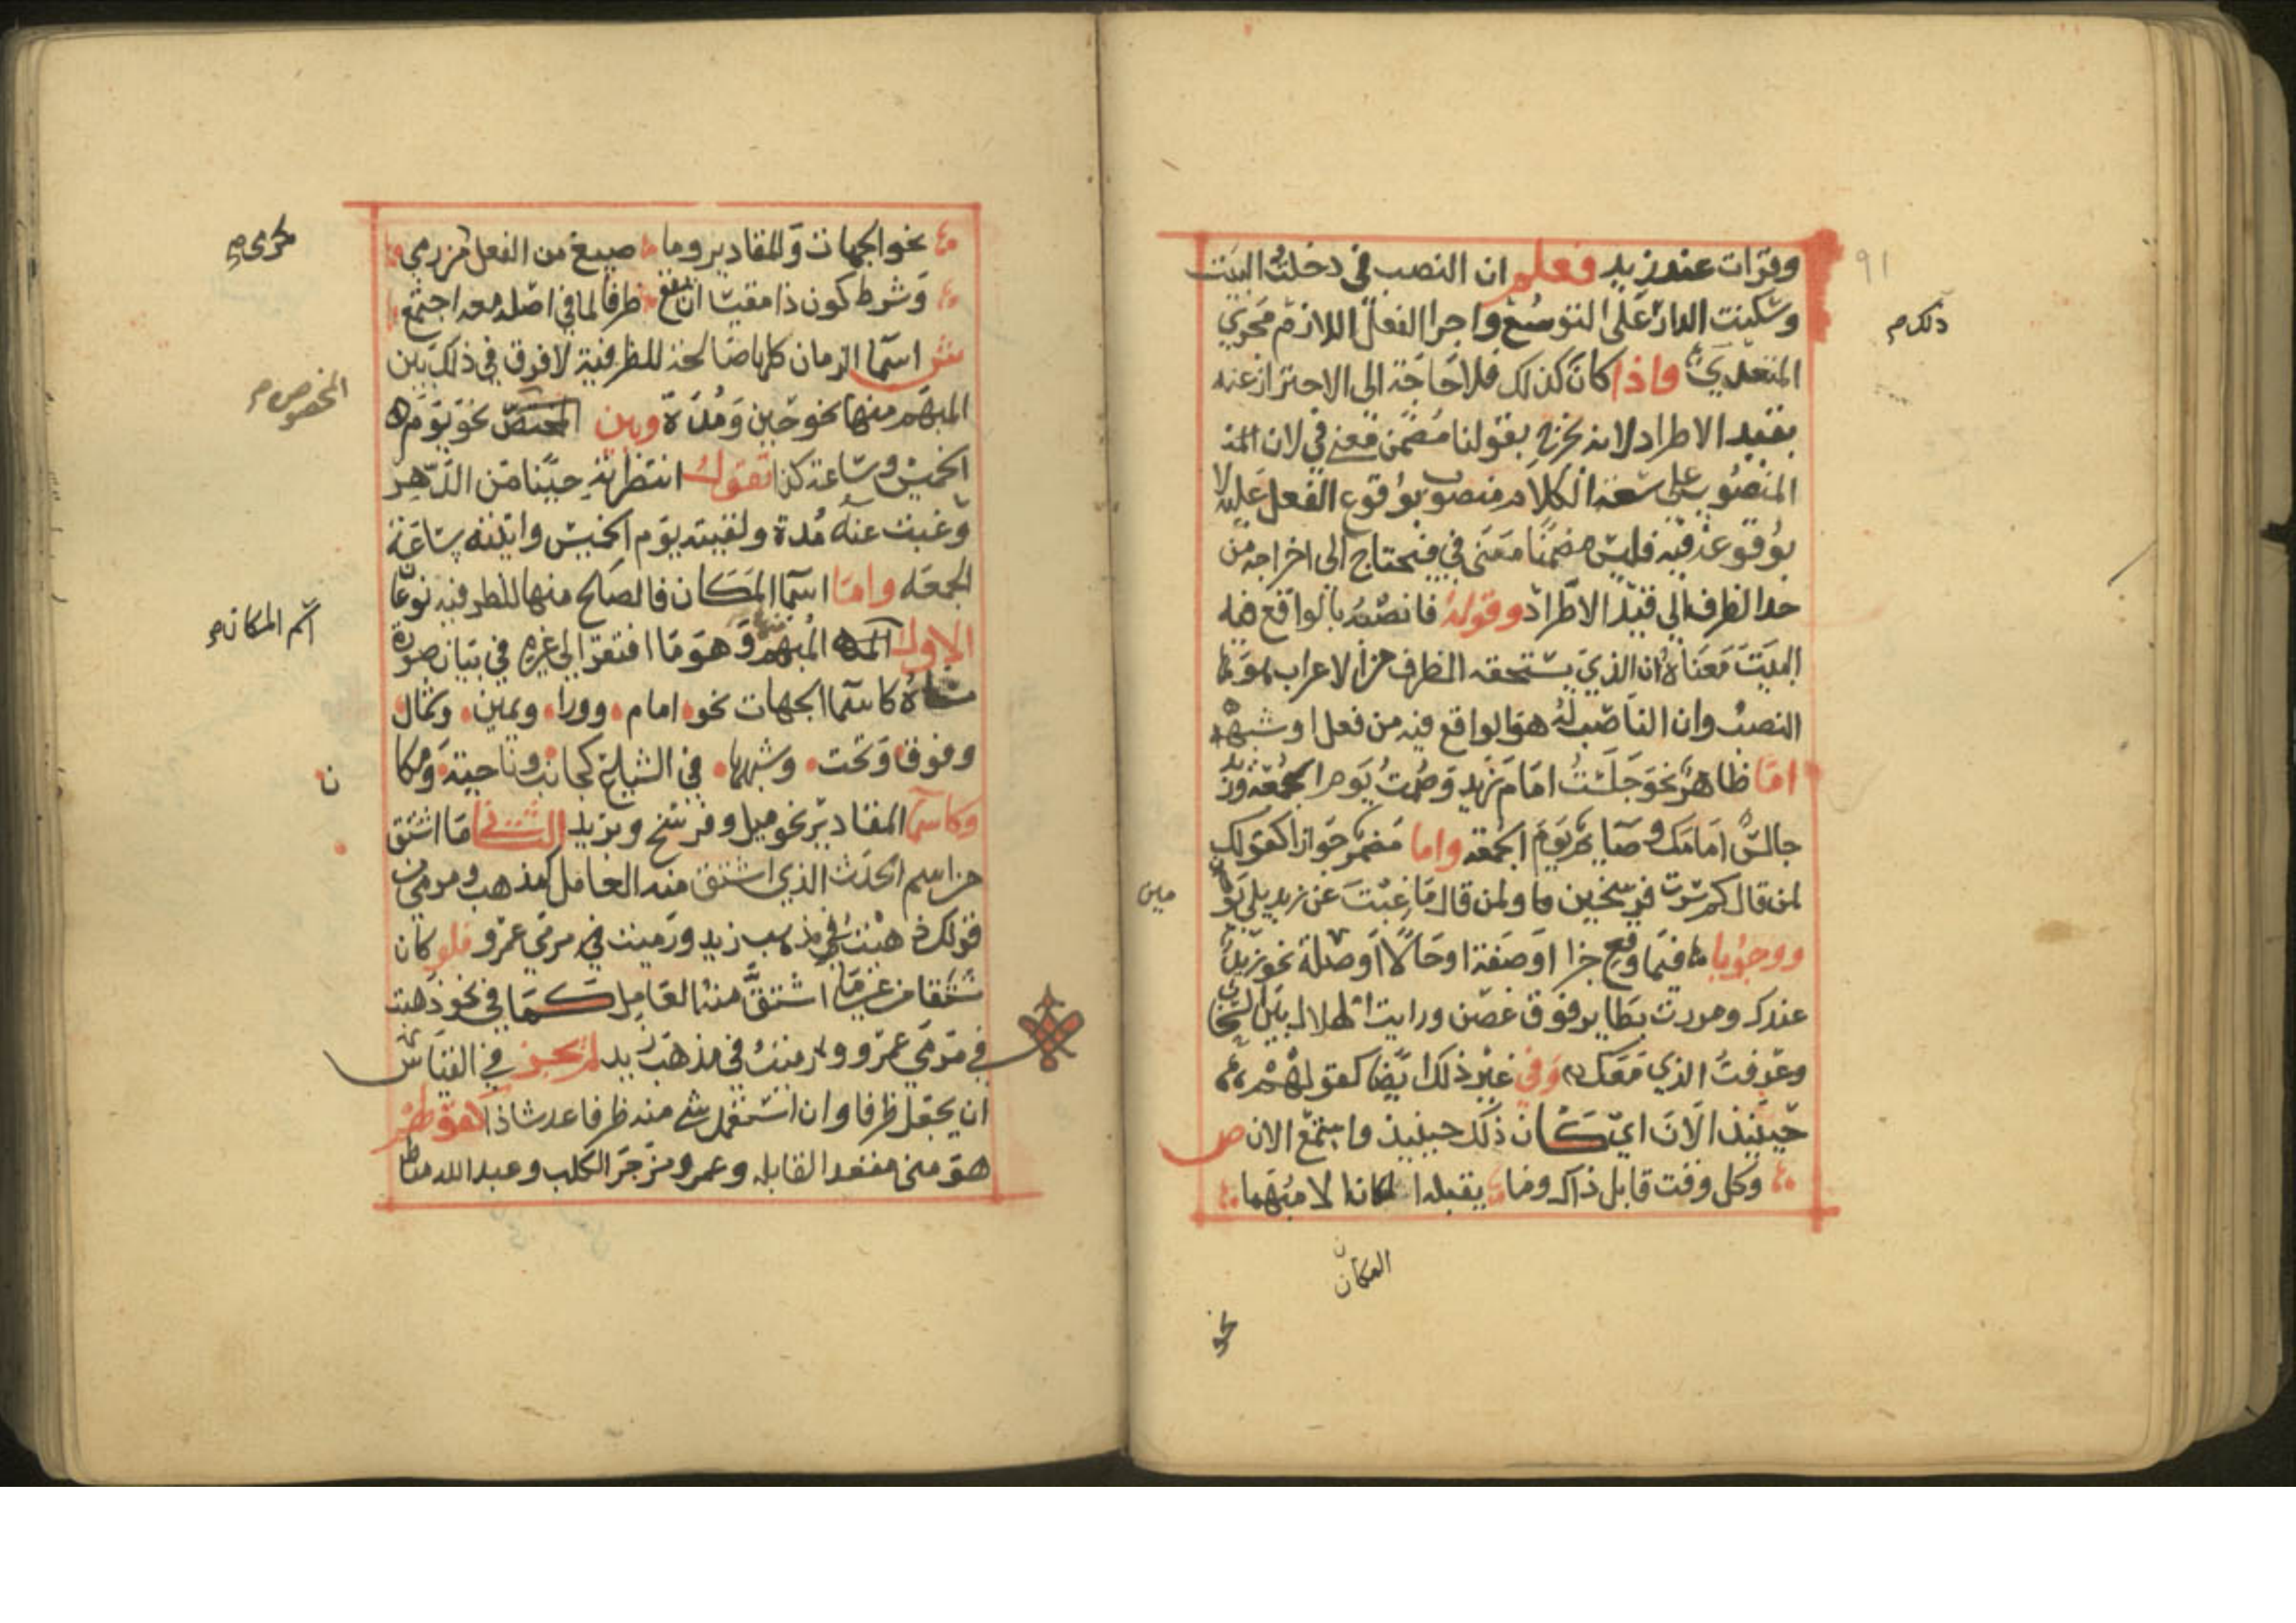 91
وقرات عند زيد فعلم ان النصب في دخلت البيت
وسكنت الدار على التوسع واجرا الفعل اللازم مجري
ذلك م
المتعدي واذا كان كذلك فلا حاجة الى الاحتراز عنه
بقيد الاطراد لانه يخرج بقولنا مضمن معنى في لان
المنصوب على سعة الكلام منصوب بوقوع الفعل عليه لا
بوقوعه فيه فليس مضمنا معنى في فيحتاج الى اخراجه من
حد الظرف الي قيد الاطراد وقوله فانصبه بالواقع فيه
البيت معناه ان الذي يستحقه الظرف من الاعراب هو
النصب وان الناصب له هو الواقع فيه من فعل او شبهه
اما ظاهر نحو جلست امام زيد وصمت يوم الجمعة وزيد
جالس امامك وصايم يوم الجمعة واما مضمر جوازا كقولك
لمن قال كم سرت فرسخين ولمن قال ما غبت عن زيد بلي يو
مين
ووجوبا فيما وقع خبرا او صفة او حالا او صلة نحو زيد
عندك ومررت بطاير فوق غصن ورايت الهلال بين السحاب
وعرفت الذي معك وفي غير ذلك ايضا كقولهم
حينيذ الان اي كان ذلك حينيذ واسمع الان ص
وكل وقت قابل ذاك وما يقبله المكان الا مبهما
المكان
نحو
نحو الجهات والمقادير وما صيغ من الفعل كمرمى من رمى
كرمي م
وشرط كون ذا مقيسا ان يقع ظرفا لما في اصله معه اجتمع
ش اسما الزمان كلها صالحة للظرفية لا فرق في ذلك بين
المبهم منها نحو حين ومدة وبين المختص نحو يوم
المخصوص م
الخميس وساعة كذا تقول انتظرته حينا من الدهر
وغبت عنه مدة ولقيته يوم الخميس واتيته ساعة
الجمعه واما اسما المكان فالصالح منها للظرفيه نوعان
اسم المكان م
الاول المبهم وهو ما افتقر الى غيره في بيان صورة
مسماه كاسما الجهات نحو امام وورا ويمين وشمال
وفوق وتحت وشبهها في الشياع كجانب وناحية ومكا
ن
وكاسما المقادير نحو ميل وفرسخ وبريد الثاني ما اشتق
من اسم الحدث الذي اشتق منه العامل كمذهب ومرمى من
قولك ذهبت في مذهب زيد ورميت في مرمي عمرو فلو كان
مشتقا من غير ما اشتق منه العامل كما في نحو ذهبت
في مرمي عمرو ورميت في مذهب زيد لم يجز في القياس
ان يجعل ظرفا وان استعمل شي منه ظرفا عد شاذا كقولهم
هو مني مقعد القابله وعمرو مزجر الكلب وعبد الله مناط